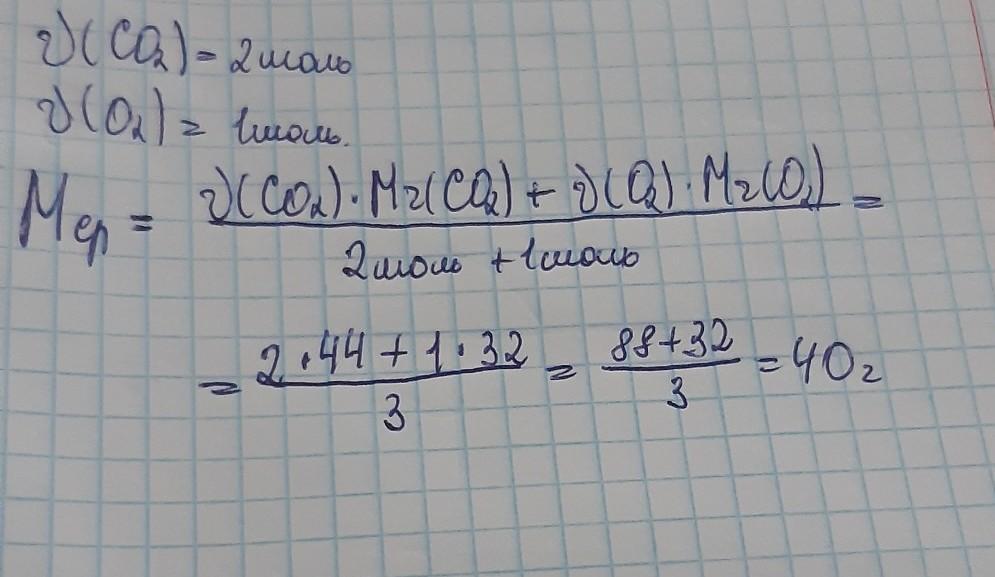 ν(CO₂) = 2 моль
ν(O₂) = 1 моль.
Mср = ν(CO₂)·Mr(CO₂) + ν(O₂)·Mr(O₂) =
2 моль + 1 моль
= 2·44 + 1·32 / 3 = 88+32 / 3 = 40г